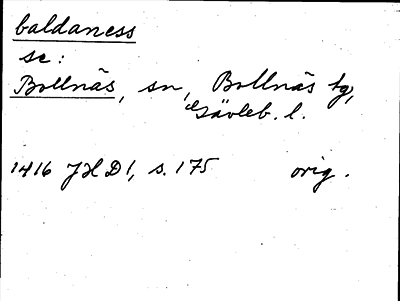 baldaness
se:
Bollnäs, sn, Bollnäs tg,
Gävleb. l.
1416 JHD1, s. 175 orig.